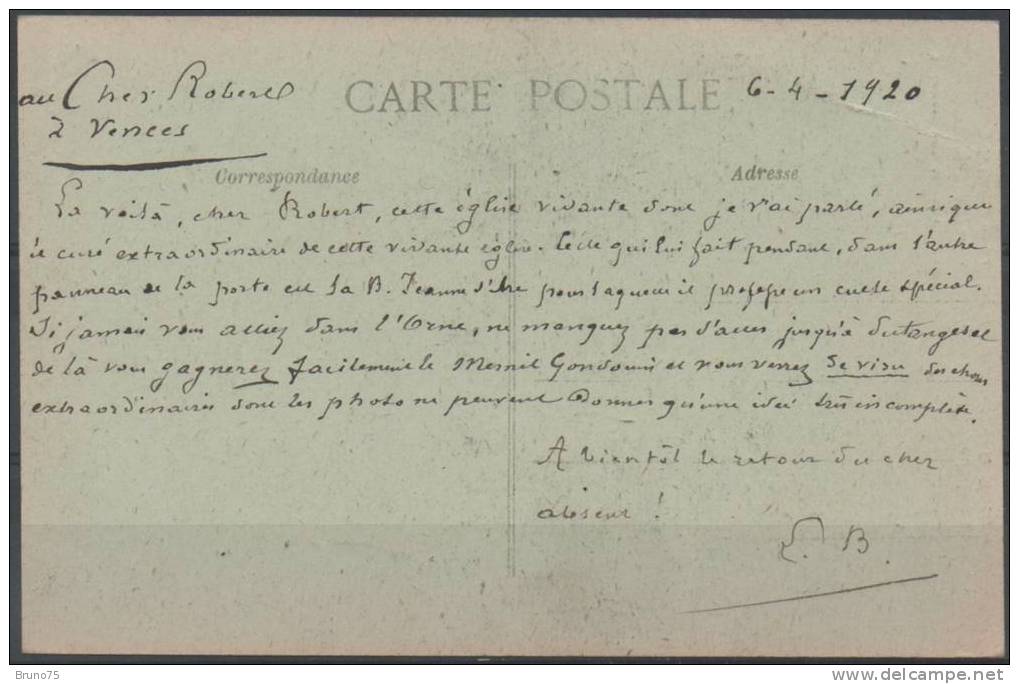 au Cher Robert
à Vences
CARTE POSTALE
6-4-1920
Correspondance
Adresse
La voilà, cher Robert, cette église vivante dont je t'ai parlé, ainsi que
le curé extraordinaire de cette vivante église. Celle qui lui fait pendant, dans l'autre
panneau de la porte est la B. Jeanne d'Arc pour laquelle il professe un culte spécial.
Si jamais vous alliez dans l'Orne, ne manquez pas d'aller jusqu'à
de là vous gagnerez facilement le Mesnil Gondouin et vous verrez de visu des choses
extraordinaires dont les photo ne peuvent donner qu'une idée très incomplète.
A bientôt le retour du cher
absent !
L. B.
Bruno75
www.delcampe.net